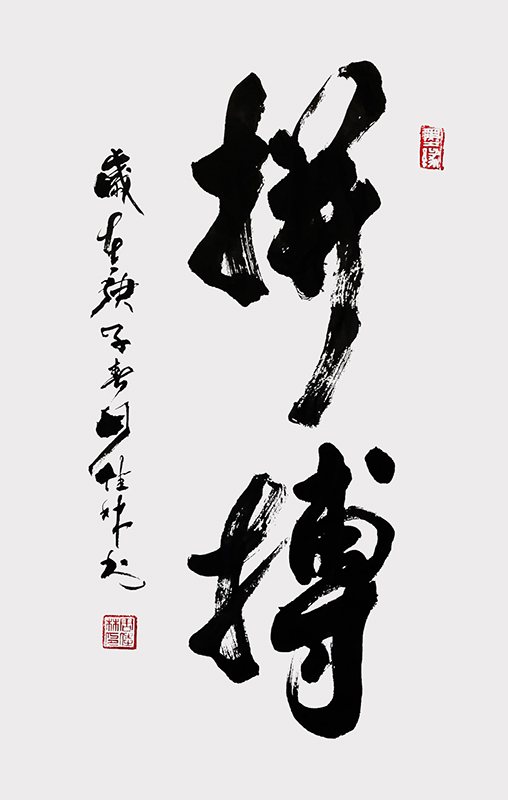 拼搏
岁在庚子春月佳林书